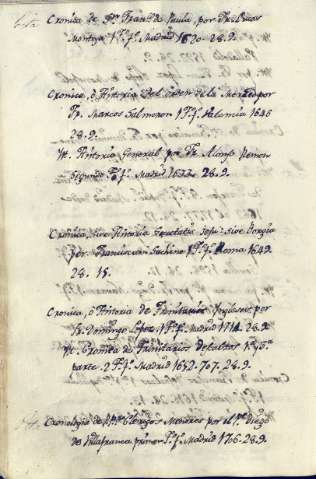 Cronica de Sn. Franco. de Paula, por Fr. Lucas
Montoya 1 tº. fº. Madrid 1620. 28.9.
Cronica, ô Historia Del orden de la Merced por
Fr. Marcos Salmeron 1 tº. fº. Valencia 1646
28.9.
Yt. Historia General por Fr. Alonso Remon
Segundo tº. fº. Madrid 28.9.
Cronica, sive Historia Societatis Jesu: sive Borgia
por Francisum Sachino 1 tº. fº. Roma 1649.
28. 15.
Cronica, ô Historia de Trinitarios Ingleses, por
Fr. Domingo Lopez 1 tº. fº. Madrid 1714. 28.9.
Yt. Cronica de Trinitarios Descalzos 1ª. y 2ª.
parte. 2 tº. fº. Madrid 1652-707. 28.9.
Cronologia de Clerigos Menores por el Pe. Diego
de Villafranca primer tº. fº. Madrid 1706. 28.9.